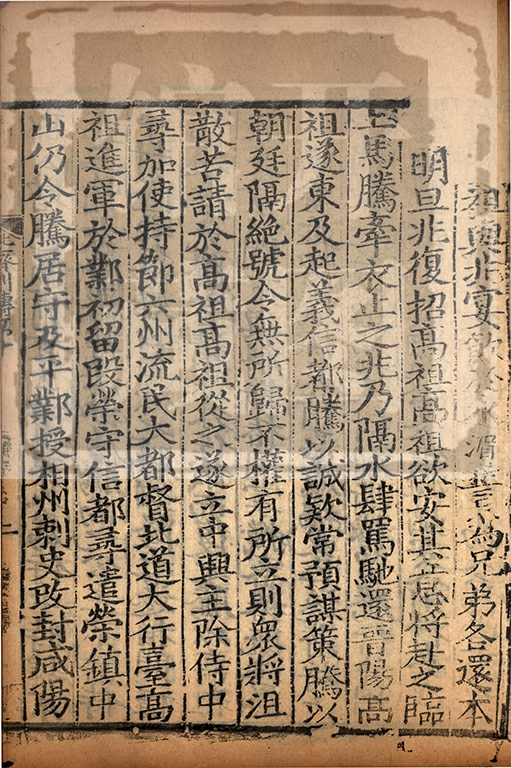 祖與兆宴飲於水湄誓為兄弟各還本
明旦兆復招高祖高祖欲安其意將赴之臨
上馬騰牽衣止之兆乃隔水肆罵馳還晉陽高
祖遂東及起義信都騰以誠欵常預謀策騰以
朝廷隔絕號令無所歸不權有所立則衆將沮
散苦請於高祖高祖從之遂立中興主除侍中
尋加使持節六州流民大都督北道大行臺高
祖進軍於鄴初留段榮守信都尋遣榮鎮中
山仍令騰居守及平鄴授相州刺史改封咸陽